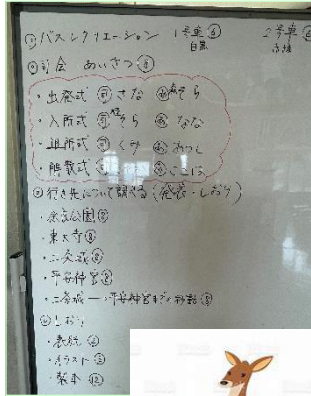 ①バスレクリエーション 1号車⑥ 2号車
②司会 あいさつ⑧
・出発式 司 さな あ そら
・入所式 司 そら あ なな
・退所式 司 くみ あ あつし
・解散式 司 あ ここは
③行き先について調べる(発表・しおり)
・奈良公園⑧
・東大寺⑧
・二条城⑧
・平安神宮⑧
・二条城一平安神宮までの移動⑧
④しおり
・表紙
・イラスト
・製本⑫